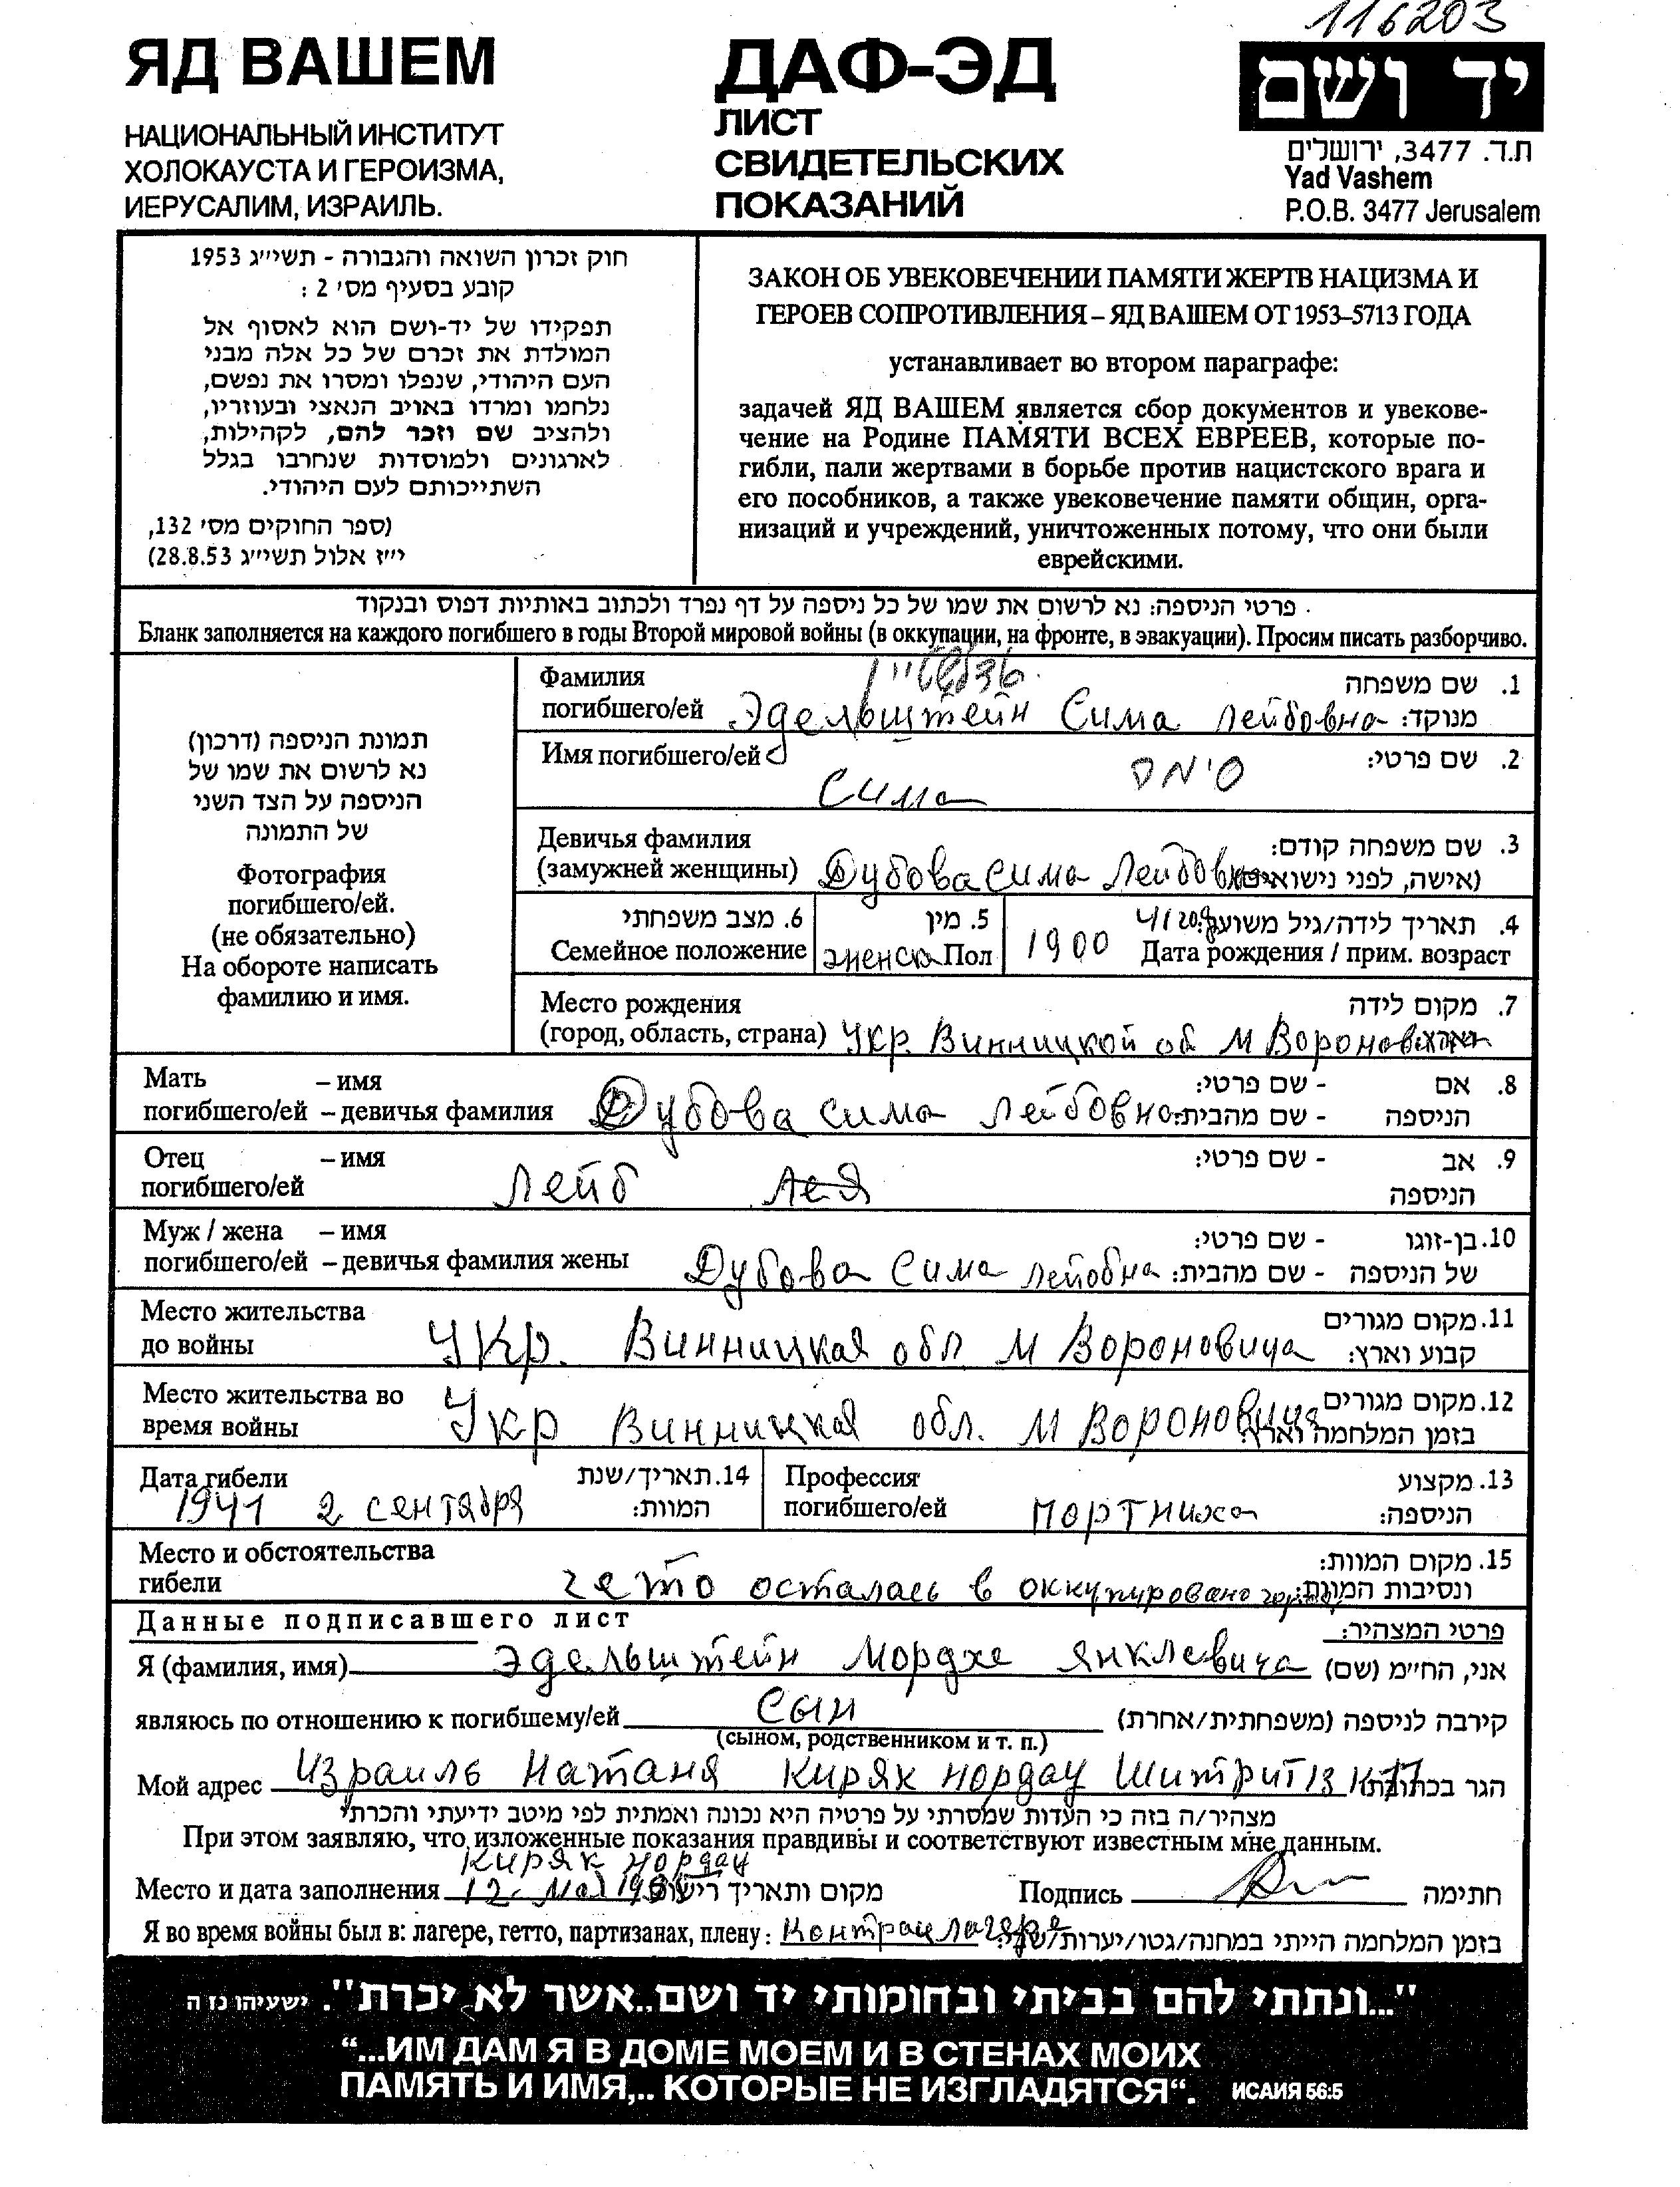 116203
ЯД ВАШЕМ
НАЦИОНАЛЬНЫЙ ИНСТИТУТ
ХОЛОКАУСТА И ГЕРОИЗМА,
ИЕРУСАЛИМ, ИЗРАИЛЬ.
ДАФ-ЭД
ЛИСТ
СВИДЕТЕЛЬСКИХ
ПОКАЗАНИЙ
יד ושם
ת.ד. 3477, ירושלים
Yad Vashem
P.O.B. 3477 Jerusalem
חוק זכרון השואה והגבורה - תשי״ג 1953
קובע בסעיף מס׳ 2 :
תפקידו של יד-ושם הוא לאסוף אל
המולדת את זכרם של כל אלה מבני
העם היהודי, שנפלו ומסרו את נפשם,
נלחמו ומרדו באויב הנאצי ובעוזריו,
ולהציב שם וזכר להם, לקהילות,
לארגונים ולמוסדות שנחרבו בגלל
השתייכותם לעם היהודי.
(ספר החוקים מס׳ 132,
י״ז אלול תשי״ג 28.8.53)
ЗАКОН ОБ УВЕКОВЕЧЕНИИ ПАМЯТИ ЖЕРТВ НАЦИЗМА И
ГЕРОЕВ СОПРОТИВЛЕНИЯ – ЯД ВАШЕМ ОТ 1953–5713 ГОДА
устанавливает во втором параграфе:
задачей ЯД ВАШЕМ является сбор документов и увекове-
чение на Родине ПАМЯТИ ВСЕХ ЕВРЕЕВ, которые по-
гибли, пали жертвами в борьбе против нацистского врага и
его пособников, а также увековечение памяти общин, орга-
низаций и учреждений, уничтоженных потому, что они были
еврейскими.
פרטי הניספה: נא לרשום את שמו של כל ניספה על דף נפרד ולכתוב באותיות דפוס ובנקוד
Бланк заполняется на каждого погибшего в годы Второй мировой войны (в оккупации, на фронте, в эвакуации). Просим писать разборчиво.
תמונת הניספה (דרכון)
נא לרשום את שמו של
הניספה על הצד השני
של התמונה
Фотография
погибшего/ей.
(не обязательно)
На обороте написать
фамилию и имя.
Фамилия אדלשטיין 1. שם משפחה
погибшего/ей Эдельштейн Сима Лейбовна מנוקד:
Имя погибшего/ей 2. שם פרטי:
Сима סימה
Девичья фамилия 3. שם משפחה קודם:
(замужней женщины) Дубова Сима Лейбовна (אישה, לפני נישואים)
6. מצב משפחתי 5. מין 4. תאריך לידה/גיל משוער:
Семейное положение женска Пол 1900 Дата рождения / прим. возраст
Место рождения 7. מקום לידה
(город, область, страна) Укр. Винницкой об М Вороновица
Мать – имя - שם פרטי: 8. אם
погибшего/ей – девичья фамилия Дубова Сима Лейбовна - שם מהבית: הניספה
Отец – имя - שם פרטי: 9. אב
погибшего/ей Лейб הניספה
Муж / жена – имя - שם פרטי: 10. בן-זוגו
погибшего/ей – девичья фамилия жены Дубова Сима Лейбовна - שם מהבית: של הניספה
Место жительства 11. מקום מגורים
до войны Укр. Винницкая обл М Вороновица קבוע וארץ:
Место жительства во 12. מקום מגורים
время войны Укр Винницкая обл. М Вороновица בזמן המלחמה וארץ:
Дата гибели 14. תאריך/שנת Профессия 13. מקצוע
1941 2 сентября המוות: погибшего/ей портниха הניספה:
Место и обстоятельства 15. מקום המוות:
гибели гето осталась в оккупировано ונסיבות המוות:
Данные подписавшего лист פרטי המצהיר:
Я (фамилия, имя) Эдельштейн Мордхе Янклевича אני, החי״מ (שם)
являюсь по отношению к погибшему/ей сын קירבה לניספה (משפחתית/אחרת)
(сыном, родственником и т. п.)
Мой адрес Израиль Натаня Киряк нордау Шитрит 13 הגר בכתובת
מצהיר/ה בזה כי העדות שמסרתי על פרטיה היא נכונה ואמתית לפי מיטב ידיעתי והכרתי
При этом заявляю, что изложенные показания правдивы и соответствуют известным мне данным.
Киряк нордау
Место и дата заполнения 12 מקום ותאריך רישום Подпись חתימה
Я во время войны был в: лагере, гетто, партизанах, плену: Контрацлагере בזמן המלחמה הייתי במחנה/גטו/יערות/שבי:
"...ונתתי להם בביתי ובחומותי יד ושם..אשר לא יכרת". ישעיהו נו ה
“...ИМ ДАМ Я В ДОМЕ МОЕМ И В СТЕНАХ МОИХ
ПАМЯТЬ И ИМЯ,.. КОТОРЫЕ НЕ ИЗГЛАДЯТСЯ“. ИСАИЯ 56:5